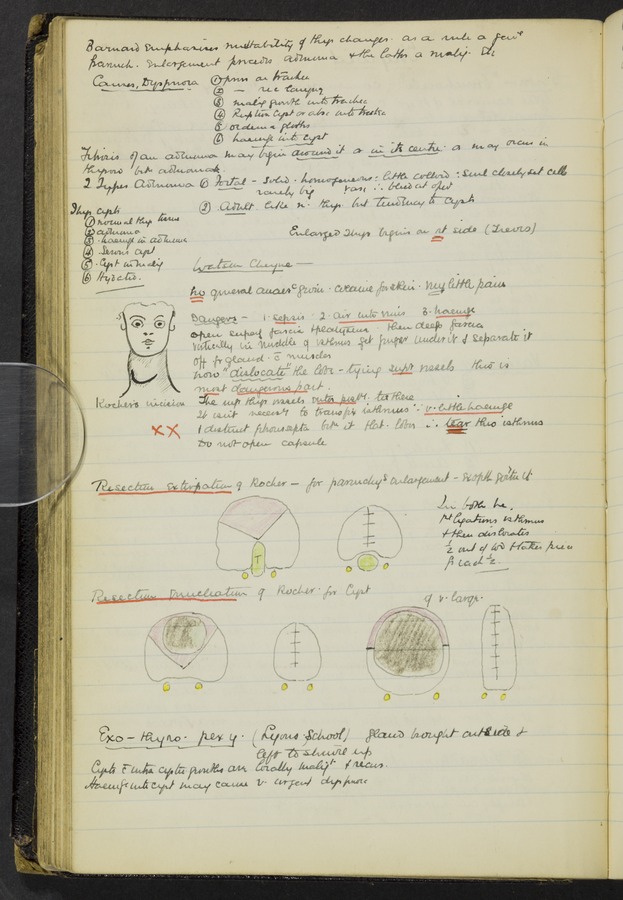 Barnard Emphasises mutability of thyr changes. as a rule a genl
Parench. Enlargement precedes adenoma & the latter a malig. Dis
Causes, Dyspnoea ① press on trachea
② — rec laryng
③ malig growth into trachea
④ Rupture Cyst or absc into trachea
⑤ oedema glottis
⑥ haemge into cyst
Fibrosis of an adenoma may begin around it or in its centre. or may occur in
thyroid but adenomat.
2 Types Adenoma ① Foetal - Solid. homogeneous: little colloid: small closely set cells
rarely big vasc ∴ bleed at opn
② Adult like n. thyr but tendency to cysts
Thyr cysts
① normal thyr tissue
② adenoma
③ haemge in adenoma
④ Serous cyst
⑤ Cyst in malig
⑥ Hydatid.
Enlarged Thyr begins on rt side (Treves)
Watson Cheyne —
No general anaesc given. cocaine for skin. very little pain
Dangers — 1. sepsis. 2. air into veins 3. haemge
open superf fascia & platysma. then deep fascia
vertically in middle of isthmus get finger under it & separate it
off fr gland. c̄ muscles
now "dislocate" the lobe - tying supr vessels this is
most dangerous part.
The inf thyr vessels enter post. so there
It isn't necessy to transfix isthmus ∵ v. little haemge
Kochers incision
XX 1 distinct lobes ∴ tear thro isthmus
Do not open capsule
Resection extirpation of Kocher — for parenchys enlargement -
In both he
1st ligatures isthmus
& then dislocates
½ out of wd & takes piece
fr each ½.
T
Resection Enucleation of Kocher. for Cyst
if v. large.
Exo-thyro-pexy. (Lyons School) gland brought outside &
left to shrivel up
Cysts c̄ intra cystic growths are locally maligt & recur.
Haemge into cyst may cause v. urgent dyspnoea